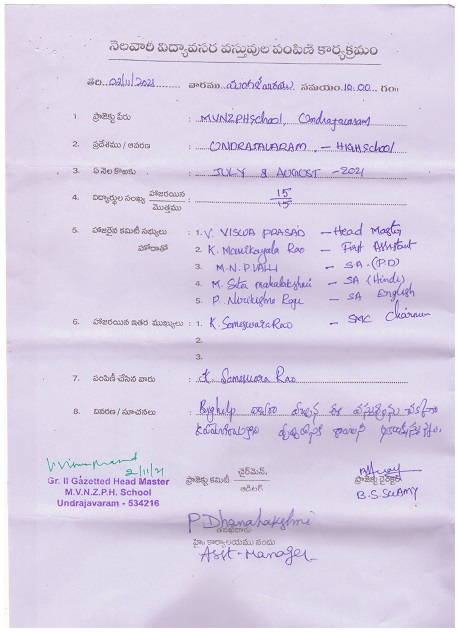 నెలవారీ విద్యావసర వస్తువుల పంపిణీ కార్యక్రమం
తేది. 02/11/2021 వారము మంగళవారము సమయం.10.00.. గం॥
1. ప్రాజెక్టు పేరు : MVNZPHSchool, Undrajavaram
2. ప్రదేశము / ఆవరణ : UNDRAJAVARAM. - HIGHSCHOOL
3. ఏ నెల కొఱకు : JULY & AUGUST - 2021
4. విద్యార్థుల సంఖ్య హాజరయిన / మొత్తము : 15/15
5. హాజరైన కమిటీ సభ్యులు : 1. V. VISWA PRASAD - Head Master
హోదాతో 2. K. Rao - First Assistant
3. M.N.P.VALLI - SA.(PD)
4. M. Sita mahalakshmi - SA (Hindi)
5. P. Raju - SA English
6. హాజరయిన ఇతర ముఖ్యులు : 1. K. Sameswara Rao - SMC Chairman
2.
3.
7. పంపిణీ చేసిన వారు : K. Sameswara Rao
8. వివరణ / సూచనలు : Bighelp వారు ఈ వస్తువులను
2/11/21
Gr. II Gazetted Head Master
M.V.N.Z.P.H. School
Undrajavaram - 534216
ప్రాజెక్టు కమిటీ ఛైర్‌మెన్, / ఆడిటర్
ప్రాజెక్టు డైరెక్టర్
B.S.SWAMY
P Dhanalakshmi
తనిఖీదారు
హై. కార్యాలయము నందు
Asst-Manager